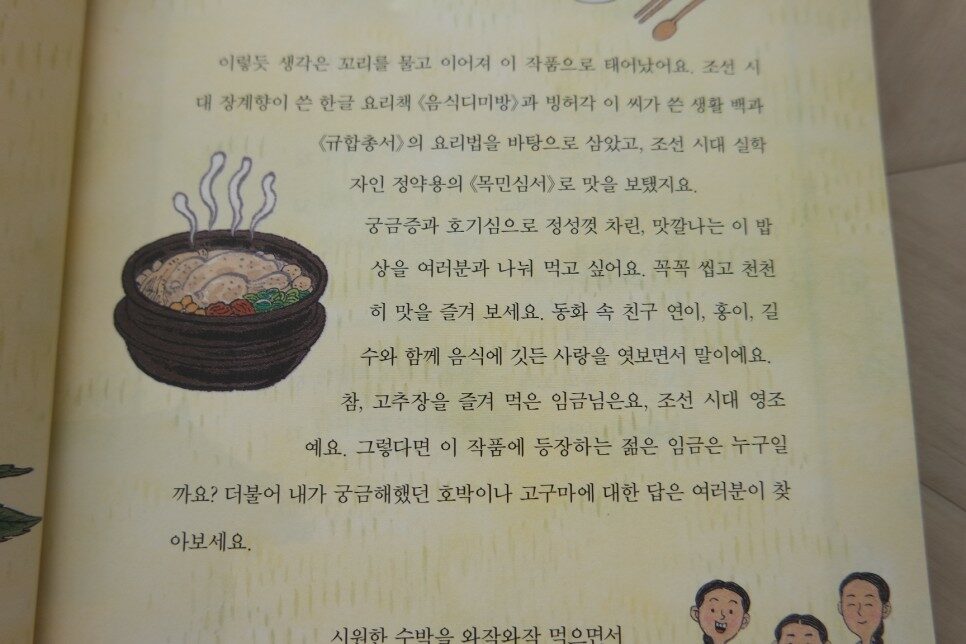 이렇듯 생각은 꼬리를 물고 이어져 이 작품으로 태어났어요. 조선 시
대 장계향이 쓴 한글 요리책 《음식디미방》과 빙허각 이 씨가 쓴 생활 백과
《규합총서》의 요리법을 바탕으로 삼았고, 조선 시대 실학
자인 정약용의 《목민심서》로 맛을 보탰지요.
궁금증과 호기심으로 정성껏 차린, 맛깔나는 이 밥
상을 여러분과 나눠 먹고 싶어요. 꼭꼭 씹고 천천
히 맛을 즐겨 보세요. 동화 속 친구 연이, 홍이, 길
수와 함께 음식에 깃든 사랑을 엿보면서 말이에요.
참, 고추장을 즐겨 먹은 임금님은요, 조선 시대 영조
예요. 그렇다면 이 작품에 등장하는 젊은 임금은 누구일
까요? 더불어 내가 궁금해했던 호박이나 고구마에 대한 답은 여러분이 찾
아보세요.
시원한 수박을 와작와작 먹으면서